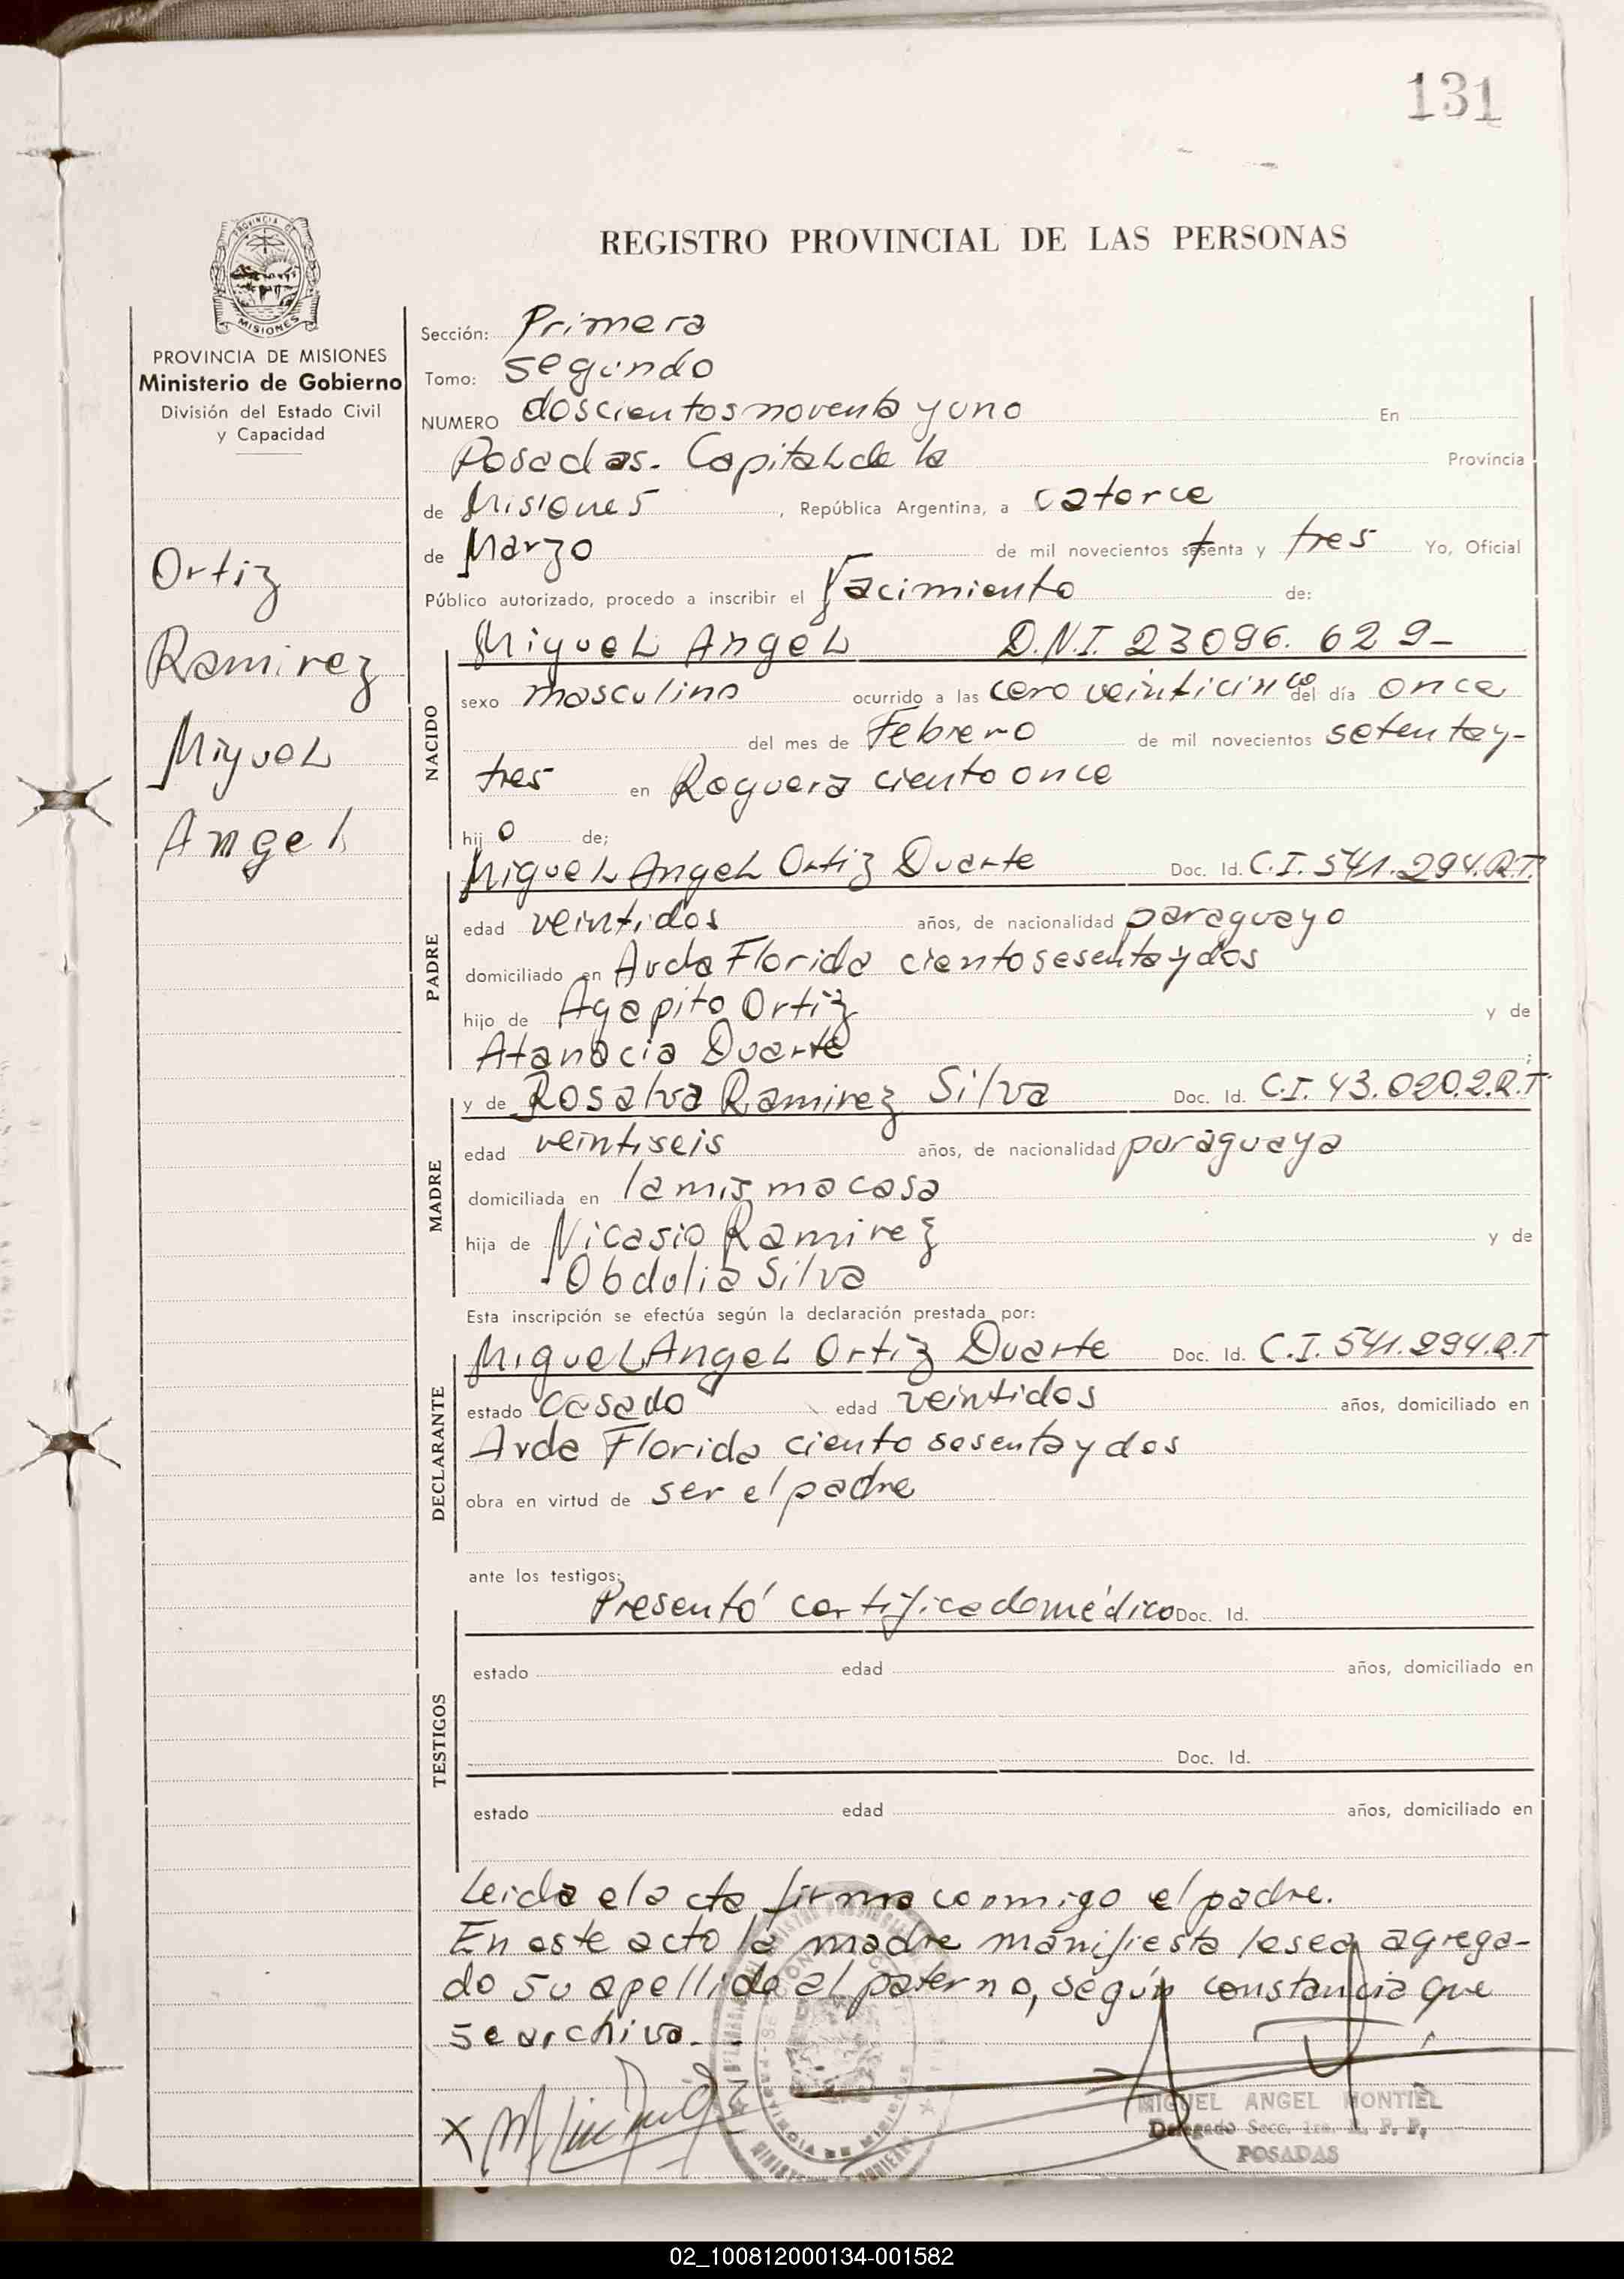 131
PROVINCIA DE
MISIONES
PROVINCIA DE MISIONES
Ministerio de Gobierno
División del Estado Civil
y Capacidad
Ortiz
Ramirez
Miguel
Angel
REGISTRO PROVINCIAL DE LAS PERSONAS
Sección: Primera
Tomo: segundo
NUMERO doscientos noventa y uno En
Posadas. Capital de la Provincia
de Misiones, República Argentina, a catorce
de Marzo de mil novecientos setenta y tres Yo, Oficial
Público autorizado, procedo a inscribir el Nacimiento de:
NACIDO
Miguel Angel D.N.I. 23096.629-
sexo masculino ocurrido a las cero veinticinco del día once
del mes de Febrero de mil novecientos setenta y-
tres en Roguera ciento once
hijo de;
PADRE
Miguel Angel Ortiz Duarte Doc. Id. C.I. 541.294.R.T.
edad veintidos años, de nacionalidad paraguayo
domiciliado en Avda Florida ciento sesenta y dos
hijo de Agapito Ortiz y de
Atanacia Duarte;
MADRE
y de Rosalva Ramirez Silva Doc. Id. C.I. 43.020.2.R.T.
edad veintiseis años, de nacionalidad paraguaya
domiciliada en la misma casa
hija de Nicasio Ramirez y de
Obdulia Silva
Esta inscripción se efectúa según la declaración prestada por:
DECLARANTE
Miguel Angel Ortiz Duarte Doc. Id. C.I. 541.294.R.T
estado casado edad veintidos años, domiciliado en
Avda Florida ciento sesenta y dos
obra en virtud de ser el padre
ante los testigos:
TESTIGOS
Presentó certificado médico Doc. Id.
estado edad años, domiciliado en
Doc. Id.
estado edad años, domiciliado en
Leida el acta firma conmigo el padre.
En este acto la madre manifiesta le sea agrega-
do su apellido al paterno, según constancia que
se archiva.
X
MIGUEL ANGEL MONTIEL
Delegado Secc. 1ra. R. P. P.
POSADAS
02_100812000134-001582